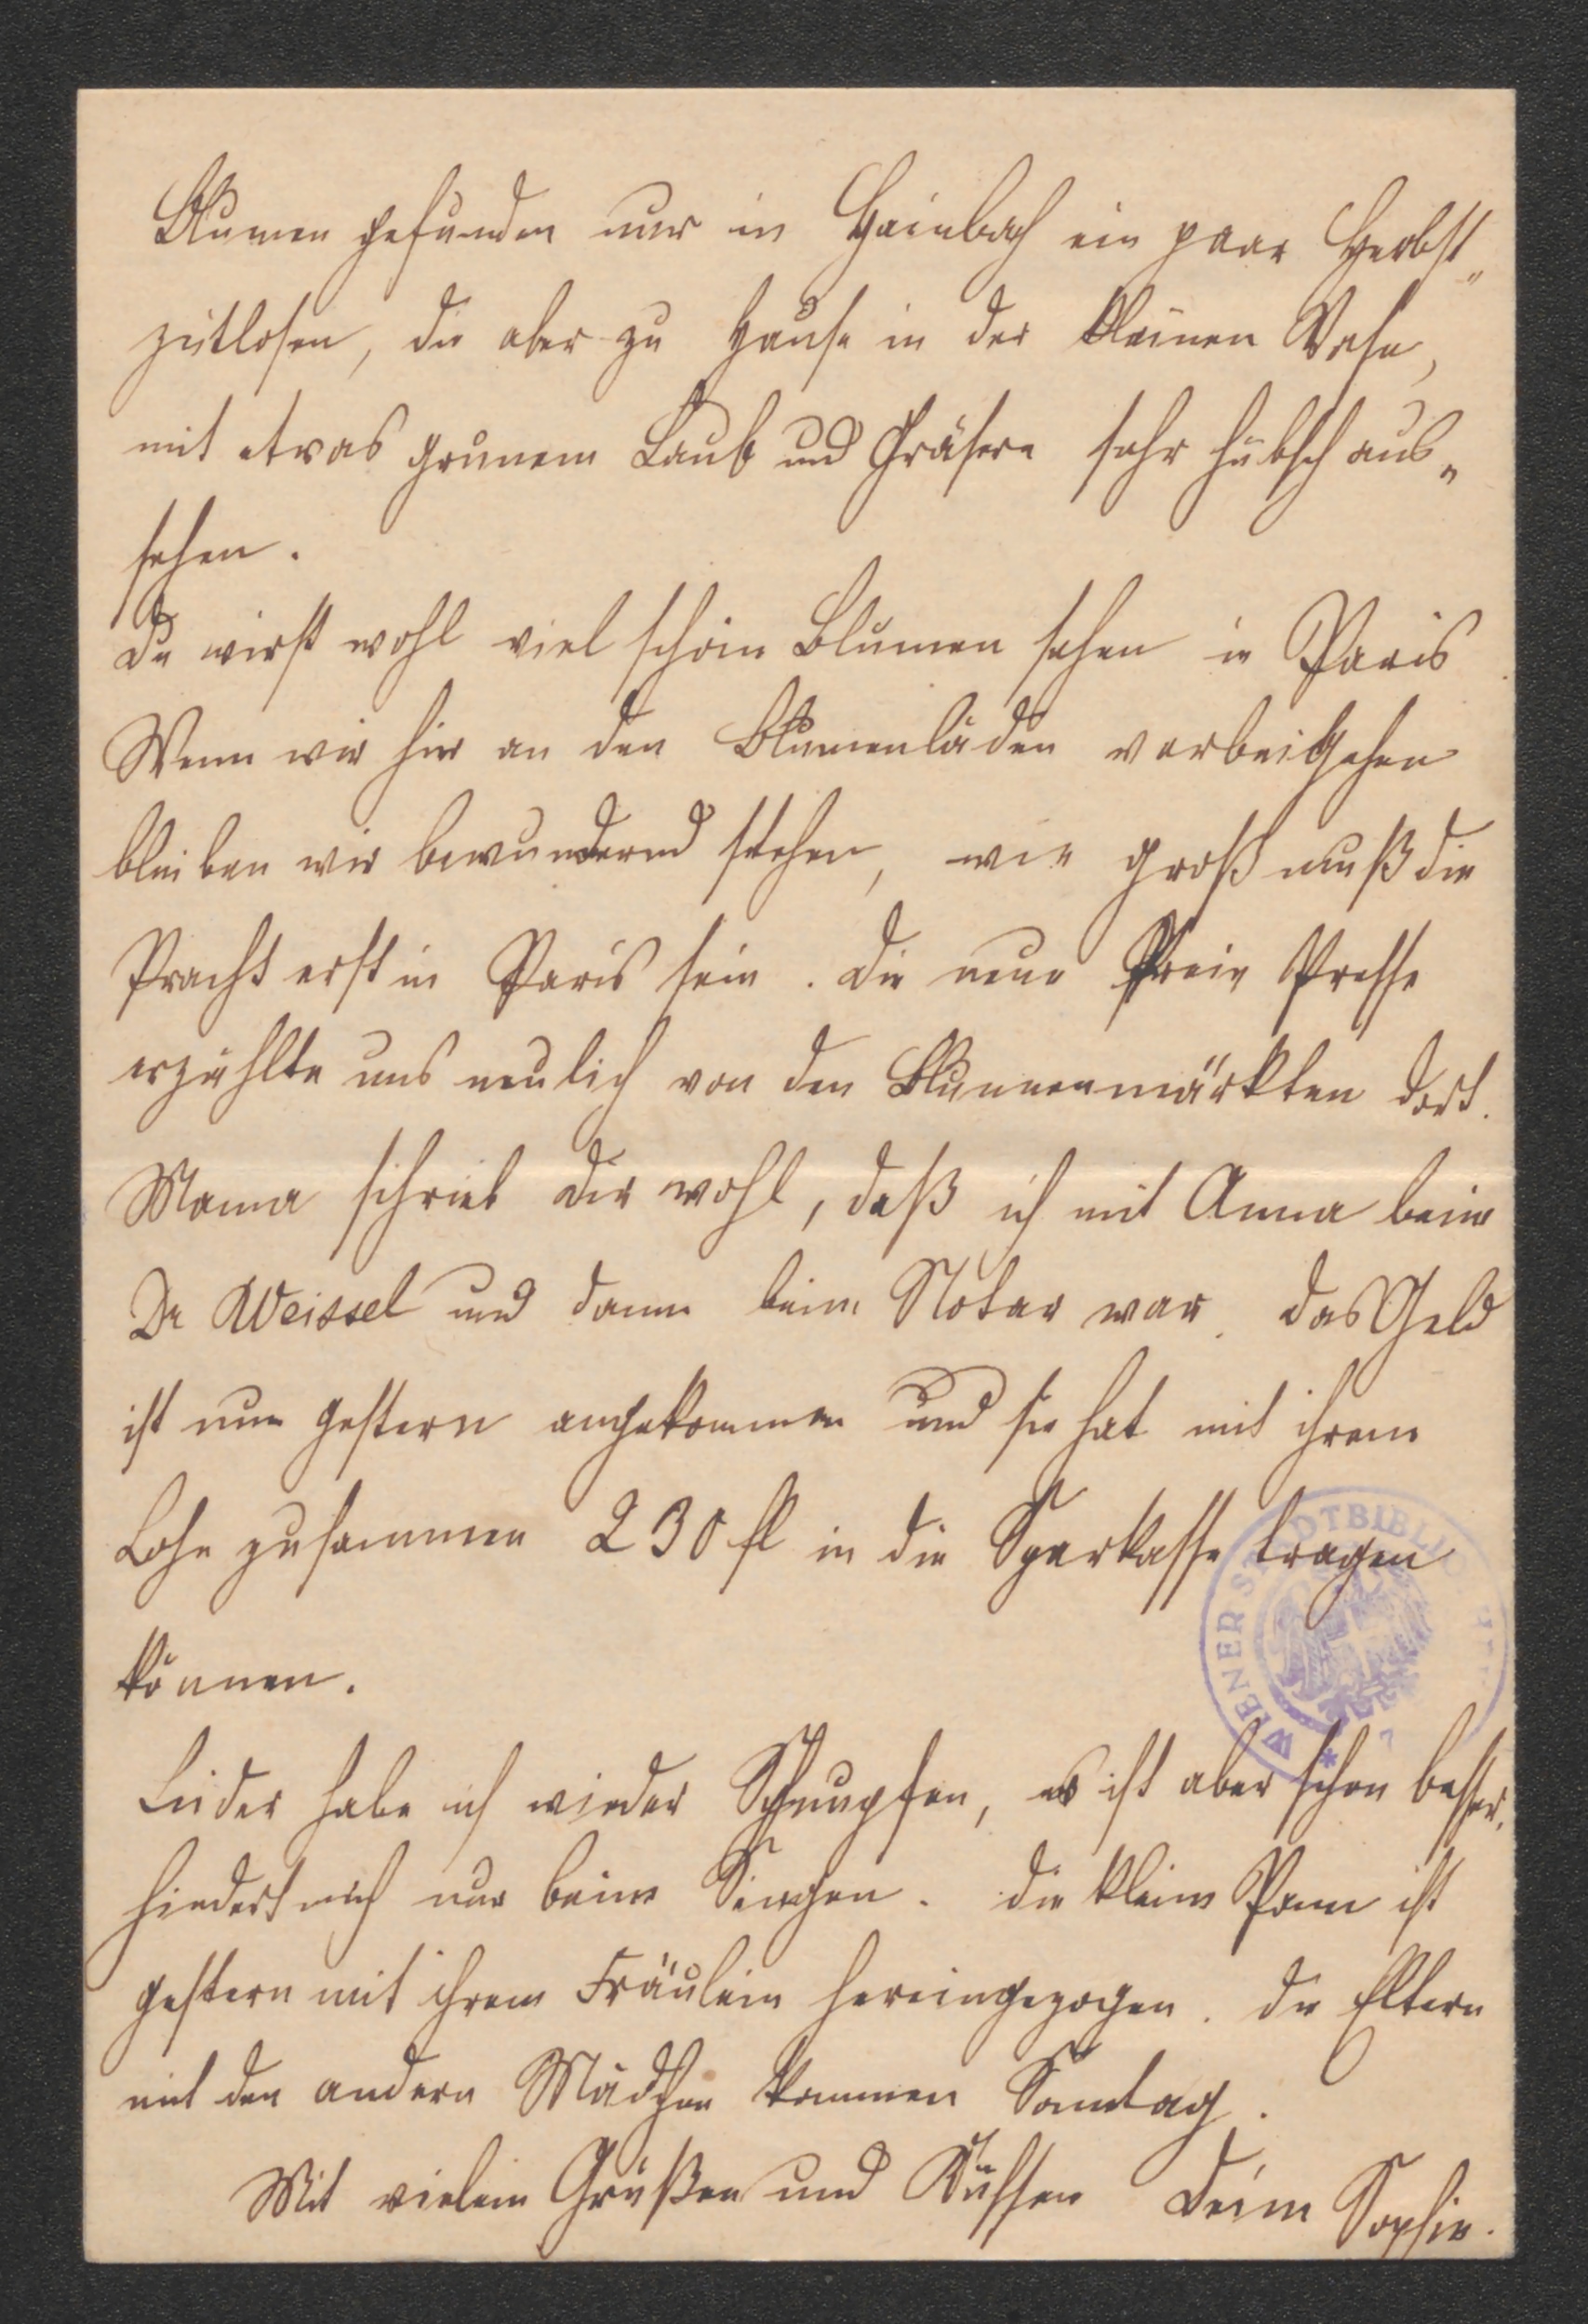 Blumen gefunden nur in Hainbach ein paar Herbst„
zeitlosen, die aber zu Hause in der kleinen Vase,
mit etwas grünem Laub und Gräsern sehr hübsch aus„
sehen.
Du wirst wohl viel schöne Blumen sehen in Paris.
Wenn wir hier an den Blumenläden vorbeigehen
bleiben wir bewundernd stehen, wie groß muß die
Pracht erst in Paris sein. Die neue Freie Presse
erzählte uns neulich von den Blumenmärkten dort.
Mama schrieb Dir wohl, daß ich mit Anna beim
Dr Weissel und dann beim Notar war. Das Geld
ist nun gestern angekommen und sie hat mit ihrem
Lohn zusammen 230 fl in die Sparkasse tragen
können.
Leider habe ich wieder Schnupfen, es ist aber schon besser,
hindert mich nur beim Singen. Die kleine ist
gestern mit ihrem Fräulein hereingezogen. Die Eltern
mit den andern Mädchen kommen Sonntag.
Mit vielen Grüßen und Küssen Deine Sophie.
WIENER STADTBIBLIO